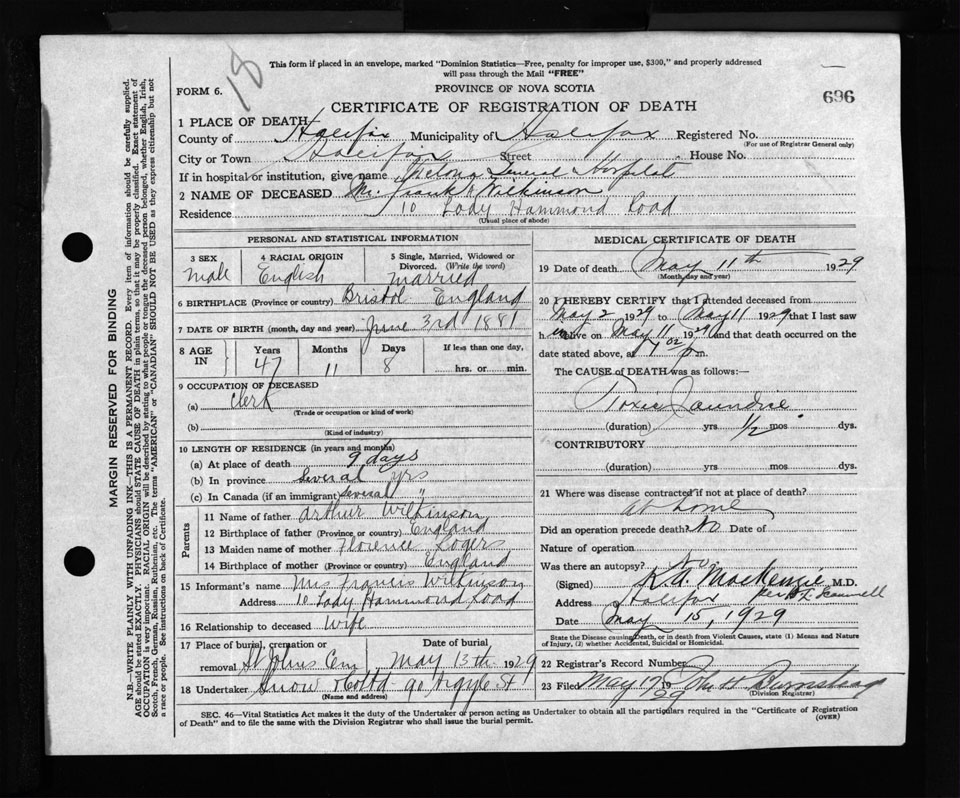 18
This form if placed in an envelope, marked "Dominion Statistics—Free, penalty for improper use, $300," and properly addressed
will pass through the Mail "FREE"
FORM 6.
PROVINCE OF NOVA SCOTIA
696
CERTIFICATE OF REGISTRATION OF DEATH
1 PLACE OF DEATH
County of Halifax Municipality of Halifax Registered No.
(For use of Registrar General only)
City or Town Halifax Street House No.
If in hospital or institution, give name General Hospital
2 NAME OF DECEASED Mr. Frank Wilkinson
Residence 10 Lady Hammond Road
(Usual place of abode)
PERSONAL AND STATISTICAL INFORMATION
3 SEX
male
4 RACIAL ORIGIN
English
5 Single, Married, Widowed or
Divorced. (Write the word)
Married
6 BIRTHPLACE (Province or country) Bristol England
7 DATE OF BIRTH (month, day and year) June 3rd 1881
8 AGE IN
Years 47
Months 11
Days 8
If less than one day,
hrs. or min.
9 OCCUPATION OF DECEASED
(a) Clerk
(Trade or occupation or kind of work)
(b)
(Kind of industry)
10 LENGTH OF RESIDENCE (in years and months)
(a) At place of death 9 days
(b) In province Several yrs
(c) In Canada (if an immigrant) Several "
Parents
11 Name of father Arthur Wilkinson
12 Birthplace of father (Province or country) England
13 Maiden name of mother Florence Rogers
14 Birthplace of mother (Province or country) England
15 Informant's name Mrs Francis Wilkinson
Address 10 Lady Hammond Road
16 Relationship to deceased Wife
17 Place of burial, cremation or
removal St Johns Cem
Date of burial
May 13th 1929
18 Undertaker Snow & Co Ltd 90 Argyle St
(Name and address)
MEDICAL CERTIFICATE OF DEATH
19 Date of death May 11th 1929
(Month, day and year)
20 I HEREBY CERTIFY that I attended deceased from
May 2 1929 to May 11 1929 that I last saw
him alive on May 11 1929 and that death occurred on the
date stated above, at p.m.
The CAUSE of DEATH was as follows:
Toxic Jaundice
(duration) yrs 1/2 mos dys.
CONTRIBUTORY
(duration) yrs mos dys.
21 Where was disease contracted if not at place of death?
at home
Did an operation precede death? No Date of
Nature of operation
Was there an autopsy? No
(Signed) K.A. MacKenzie, M.D.
Address Halifax
Date May 15, 1929
State the Disease causing Death, or in death from Violent Causes, state (1) Means and Nature
of Injury, (2) whether Accidental, Suicidal or Homicidal.
22 Registrar's Record Number
23 Filed May 17 29
(Division Registrar)
SEC. 46—Vital Statistics Act makes it the duty of the Undertaker or person acting as Undertaker to obtain all the particulars required in the "Certificate of Registration
of Death" and to file the same with the Division Registrar who shall issue the burial permit.
(OVER)
MARGIN RESERVED FOR BINDING
N.B.—WRITE PLAINLY WITH UNFADING INK—THIS IS A PERMANENT RECORD. Every item of information should be carefully supplied.
AGE should be stated EXACTLY. PHYSICIANS should STATE CAUSE OF DEATH in plain terms, so that it may be properly classified. Exact statement of
OCCUPATION is very important. RACIAL ORIGIN will be described by stating to what people or tongue the deceased person belonged, whether English, Irish,
Scotch, French, German, Russian, Ruthenian, etc. The terms "AMERICAN" or "CANADIAN" SHOULD NOT BE USED as they express citizenship but not
a race or people. See instructions on back of Certificate.